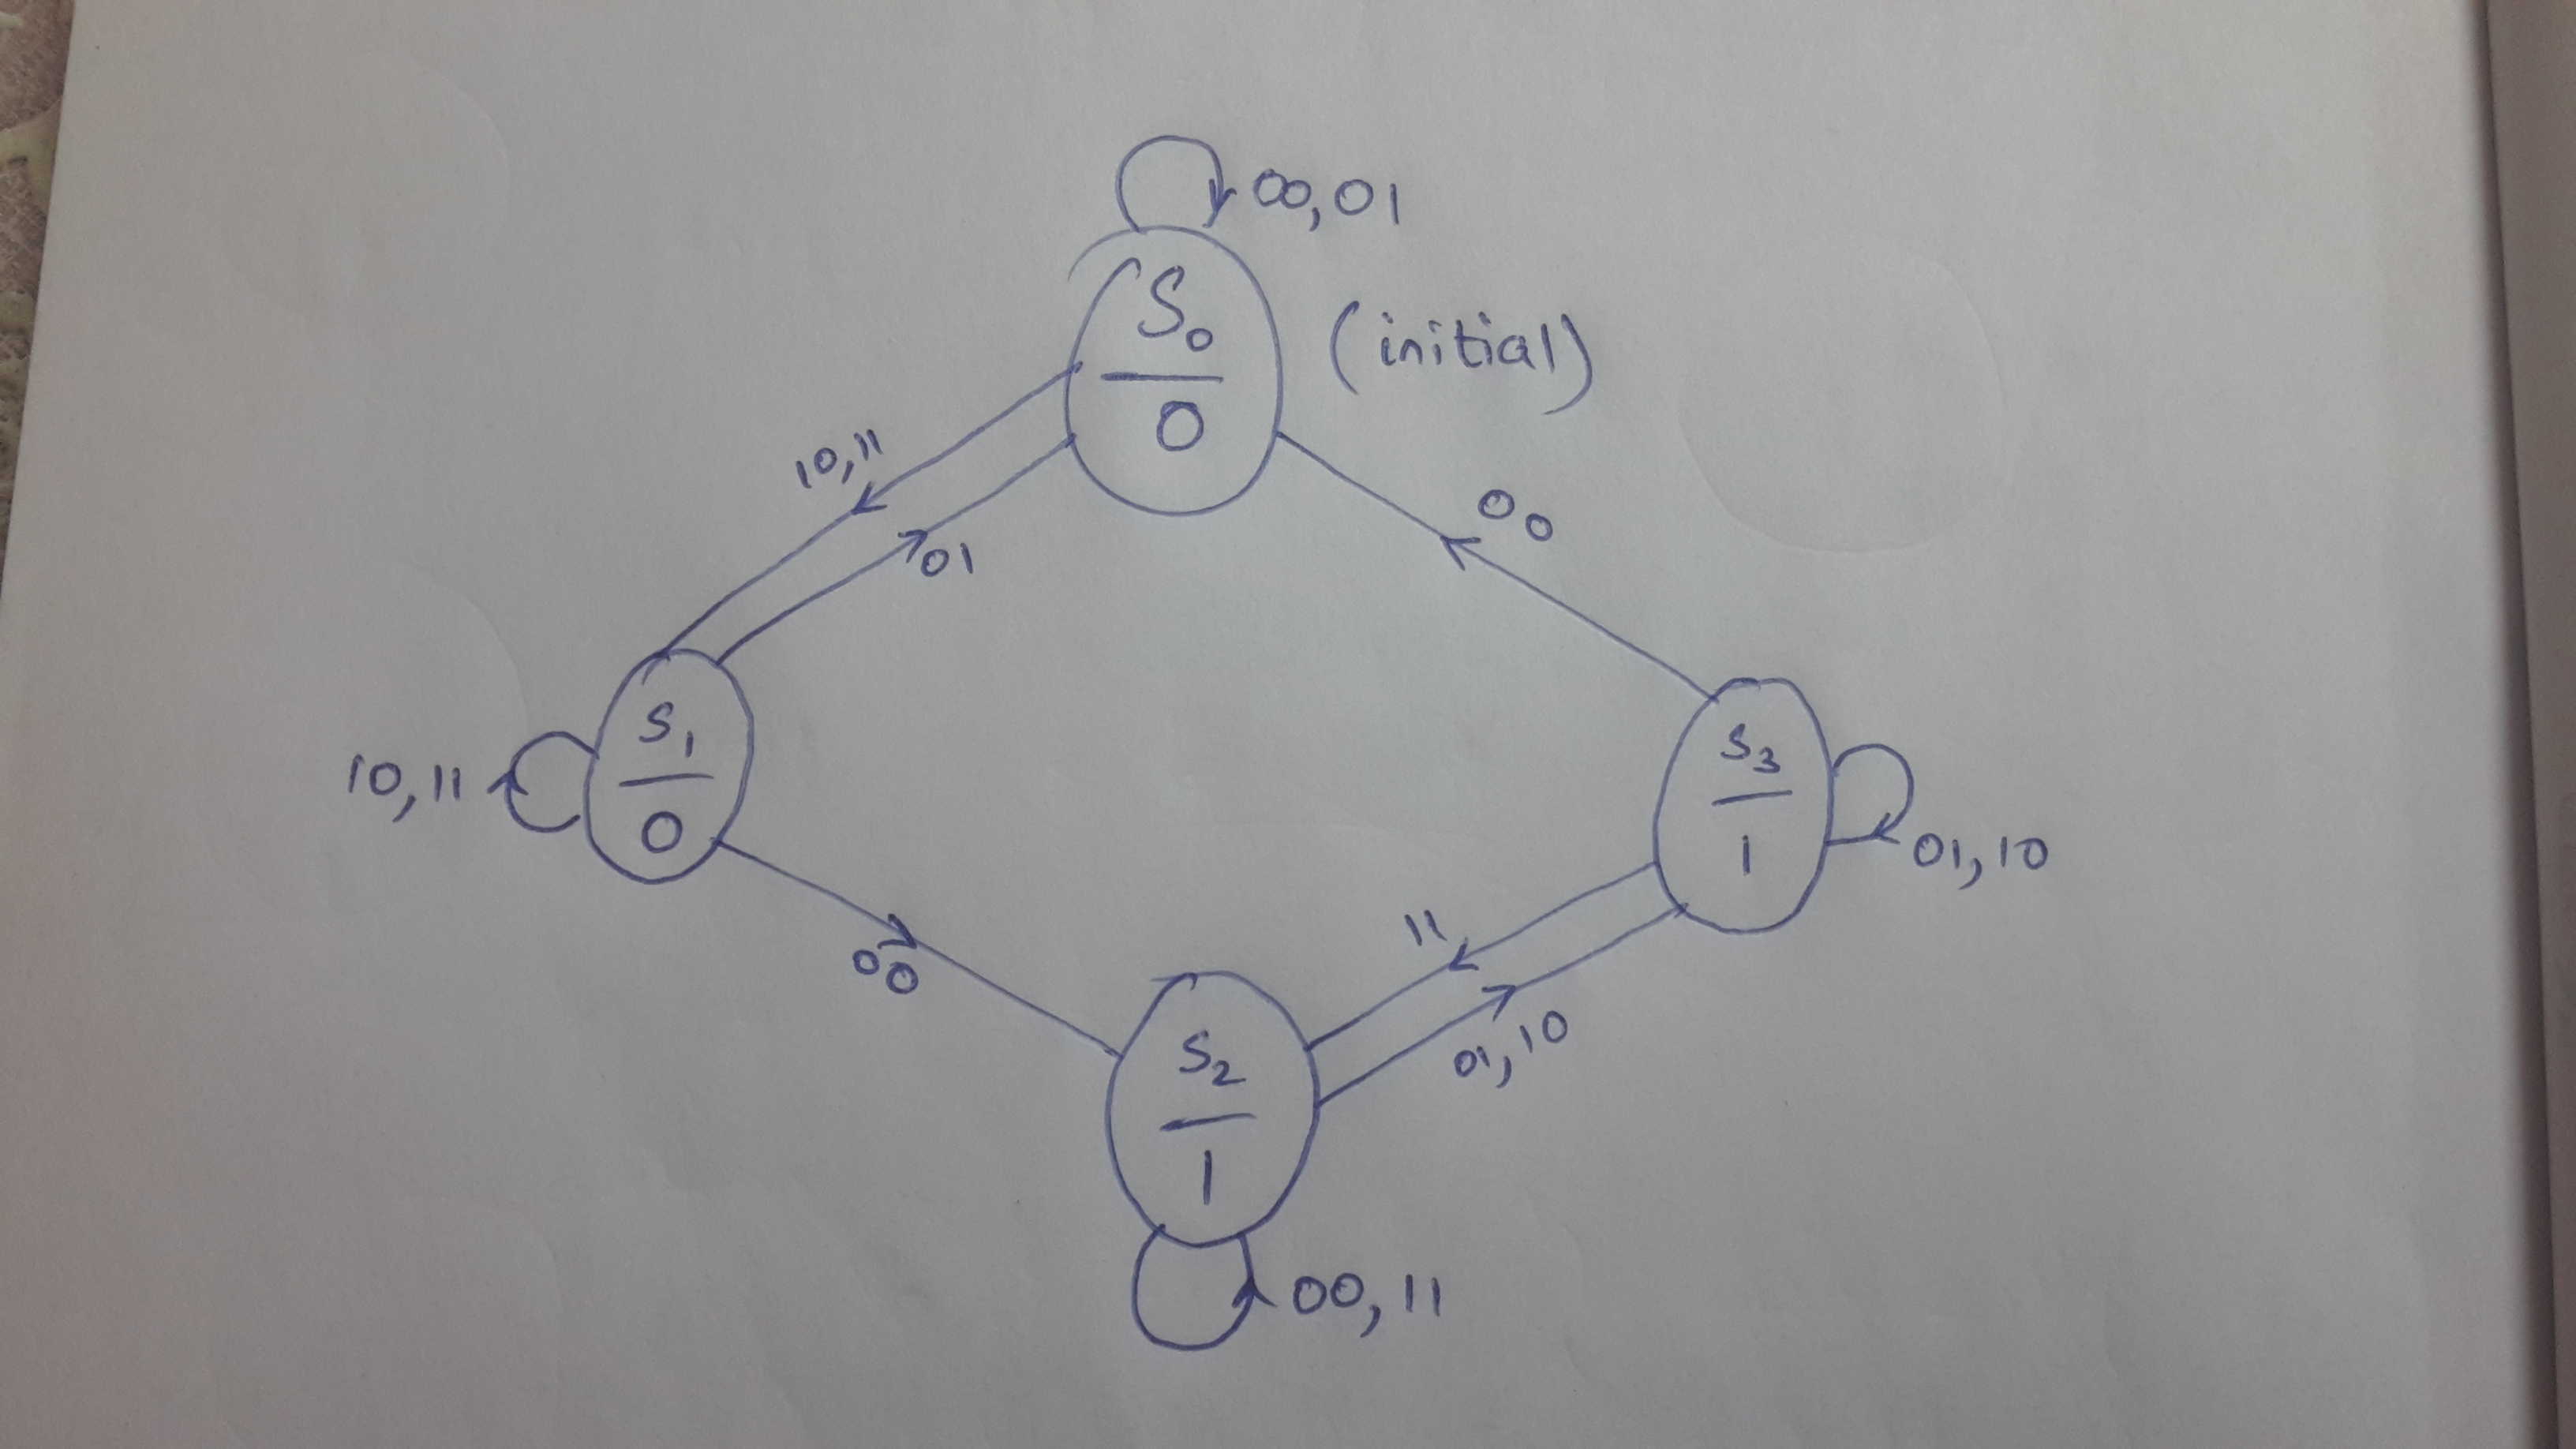 00,01
S0
0
(initial)
10,11
01
00
S1
0
10,11
S3
1
01,10
00
11
01,10
S2
1
00,11